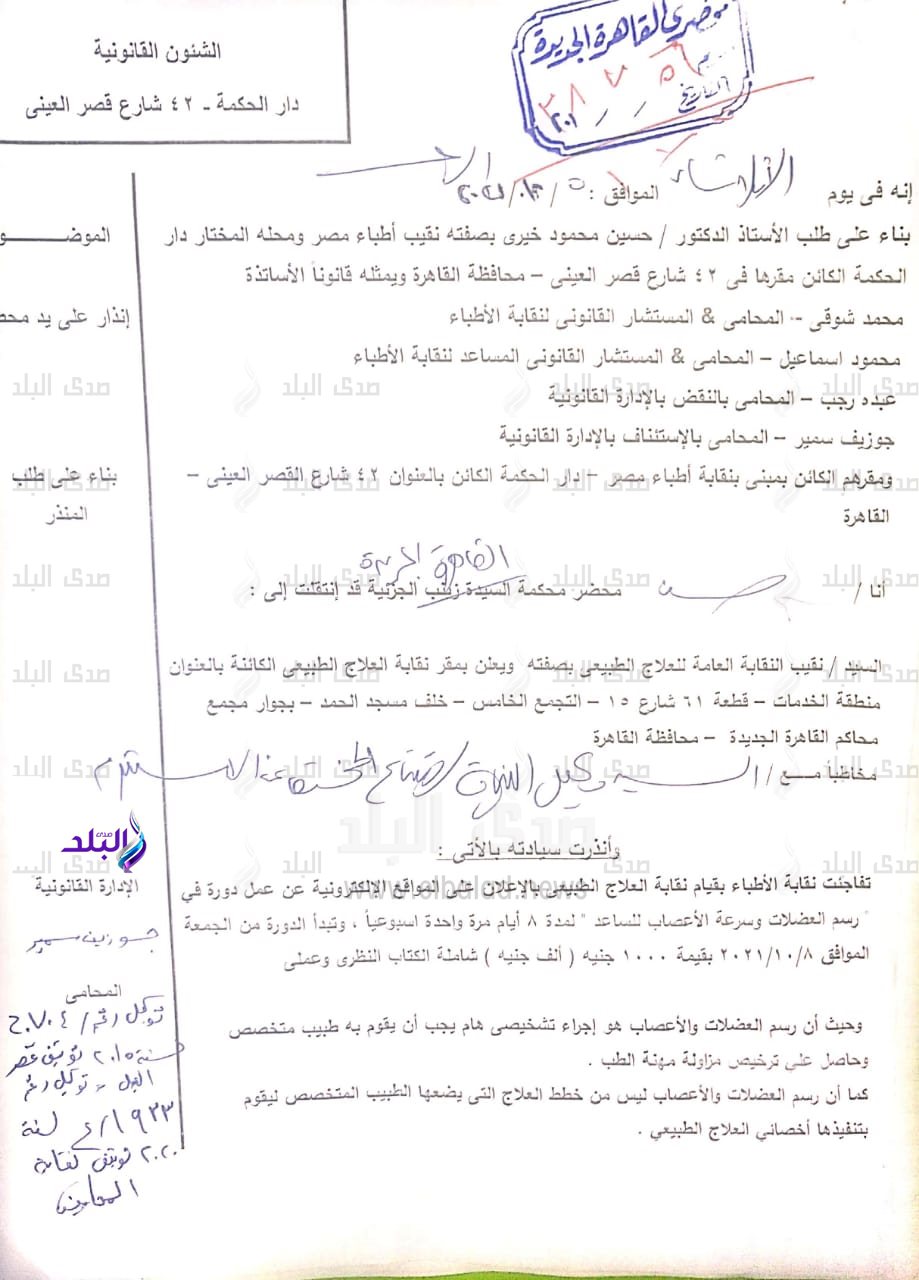 الشئون القانونية
دار الحكمة - ٤٢ شارع قصر العينى
محضري القاهرة الجديدة
التاريخ / / ٢٠١
إنه فى يوم الثلاثاء الموافق : ٥ / ١٠ / ٢٠٢١
بناء على طلب الأستاذ الدكتور / حسين محمود خيرى بصفته نقيب أطباء مصر ومحله المختار دار
الحكمة الكائن مقرها فى ٤٢ شارع قصر العينى – محافظة القاهرة ويمثله قانوناً الأساتذة
محمد شوقى - المحامى & المستشار القانونى لنقابة الأطباء
محمود اسماعيل – المحامى & المستشار القانونى المساعد لنقابة الأطباء
عبده رجب – المحامى بالنقض بالإدارة القانونية
جوزيف سمير – المحامى بالإستئناف بالإدارة القانونية
ومقرهم الكائن بمبنى بنقابة أطباء مصر – دار الحكمة الكائن بالعنوان ٤٢ شارع القصر العينى –
القاهرة
القاهرة الجديدة
أنا / محضر محكمة السيدة زينب الجزئية قد إنتقلت إلى :
السيد / نقيب النقابة العامة للعلاج الطبيعى بصفته ويعلن بمقر نقابة العلاج الطبيعى الكائنة بالعنوان
منطقة الخدمات – قطعة ٦١ شارع ١٥ – التجمع الخامس – خلف مسجد الحمد – بجوار مجمع
محاكم القاهرة الجديدة – محافظة القاهرة
مخاطباً مـــع /
وأنذرت سيادته بالأتى :
تفاجئت نقابة الأطباء بقيام نقابة العلاج الطبيعى بالإعلان على المواقع الإلكترونية عن عمل دورة في
" رسم العضلات وسرعة الأعصاب للساعد " لمدة ٨ أيام مرة واحدة اسبوعياً ، وتبدأ الدورة من الجمعة
الموافق ٢٠٢١/١٠/٨ بقيمة ١٠٠٠ جنيه ( ألف جنيه ) شاملة الكتاب النظرى وعملى
وحيث أن رسم العضلات والأعصاب هو إجراء تشخيصى هام يجب أن يقوم به طبيب متخصص
وحاصل على ترخيص مزاولة مهنة الطب .
كما أن رسم العضلات والأعصاب ليس من خطط العلاج التى يضعها الطبيب المتخصص ليقوم
بتنفيذها أخصائي العلاج الطبيعي .
الموضـــــــو
إنذار على يد محض
بناء على طلب
المنذر
صدى البلد
www.elbalad.news
الإدارة القانونية
جوزيف سمير
المحامى
توكيل رقم / ٧٠٤ ح
سنة ٢٠١٥ توثيق قصر
النيل - توكيل رقم
١٩٣٣ / ع لسنة
٢٠٢٠ توثيق نقابة
المحامين